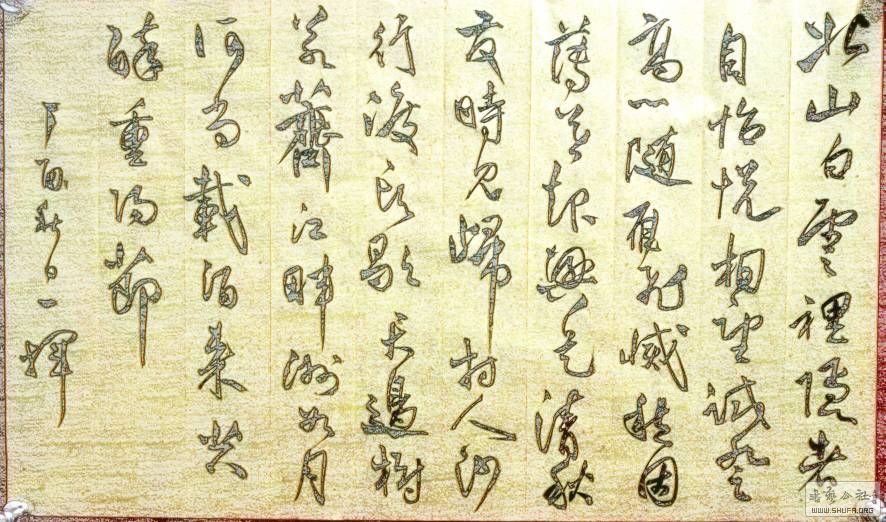 北山白雲裡隱者
自怡悅相望試登
高心隨雁飛滅愁因
薄暮起興是清秋
發時見歸村人沙
行渡頭歇天邊樹
若薺江畔洲如月
何當載酒來共
醉重陽節
丁酉秋日一輝
書藝公社
WWW.SHUFA.ORG